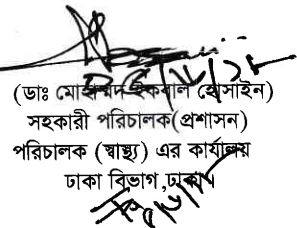 (ডাঃ মোহাম্মদ ইকবাল হোসাইন)
সহকারী পরিচালক(প্রশাসন)
পরিচালক (স্বাস্থ্য) এর কার্যালয়
ঢাকা বিভাগ,ঢাকা।